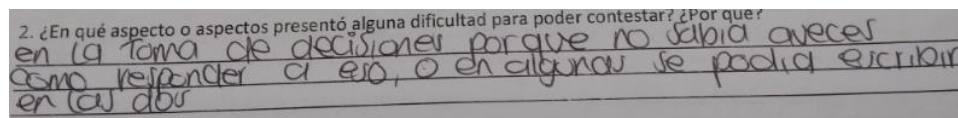 2. ¿En qué aspecto o aspectos presentó alguna dificultad para poder contestar? ¿Por qué?
en la Toma de decisiones porque no sabia aveces
como responder a eso, o en algunas se podia escribir
en las dos